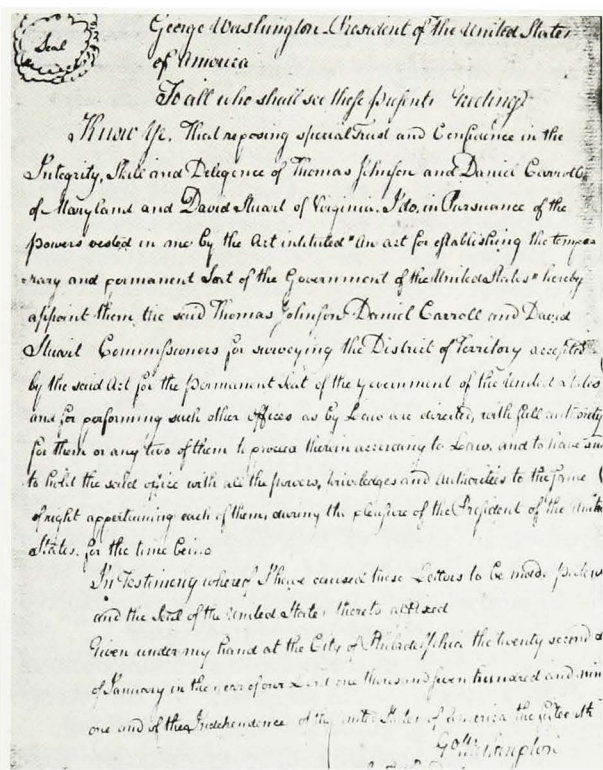 Seal
George Washington President of the United States
of America
To all who shall see these presents Greeting
Know Ye. That reposing special Trust and Confidence in the
Integrity, Skill and Deligence of Thomas Johnson and Daniel Carroll
of Maryland and David Stuart of Virginia. I do, in Pursuance of the
powers vested in me by the Act intituted "An act for establishing the tempo
rary and permanent Seat of the Government of the United States" hereby
appoint them the said Thomas Johnson Daniel Carroll and David
Stuart Commissioners for surveying the District of Territory accepted
by the said Act for the permanent Seat of the Government of the United States
and for performing such other offices as by Law are directed, with full authority
for them or any two of them to proceed therein according to Law, and to have and
to hold the said office with all the powers, priviledges and Authorities to the same
of right appertaining each of them, during the pleasure of the President of the United
States. for the time being
In Testimony whereof I have caused these Letters to be made patent
and the Seal of the United States thereto affixed
Given under my hand at the City of Philadelphia the twenty second d
of January in the year of our Lord one thousand seven hundred and nin
one and of the Independence of the United States of America the fifteenth
Go Washington